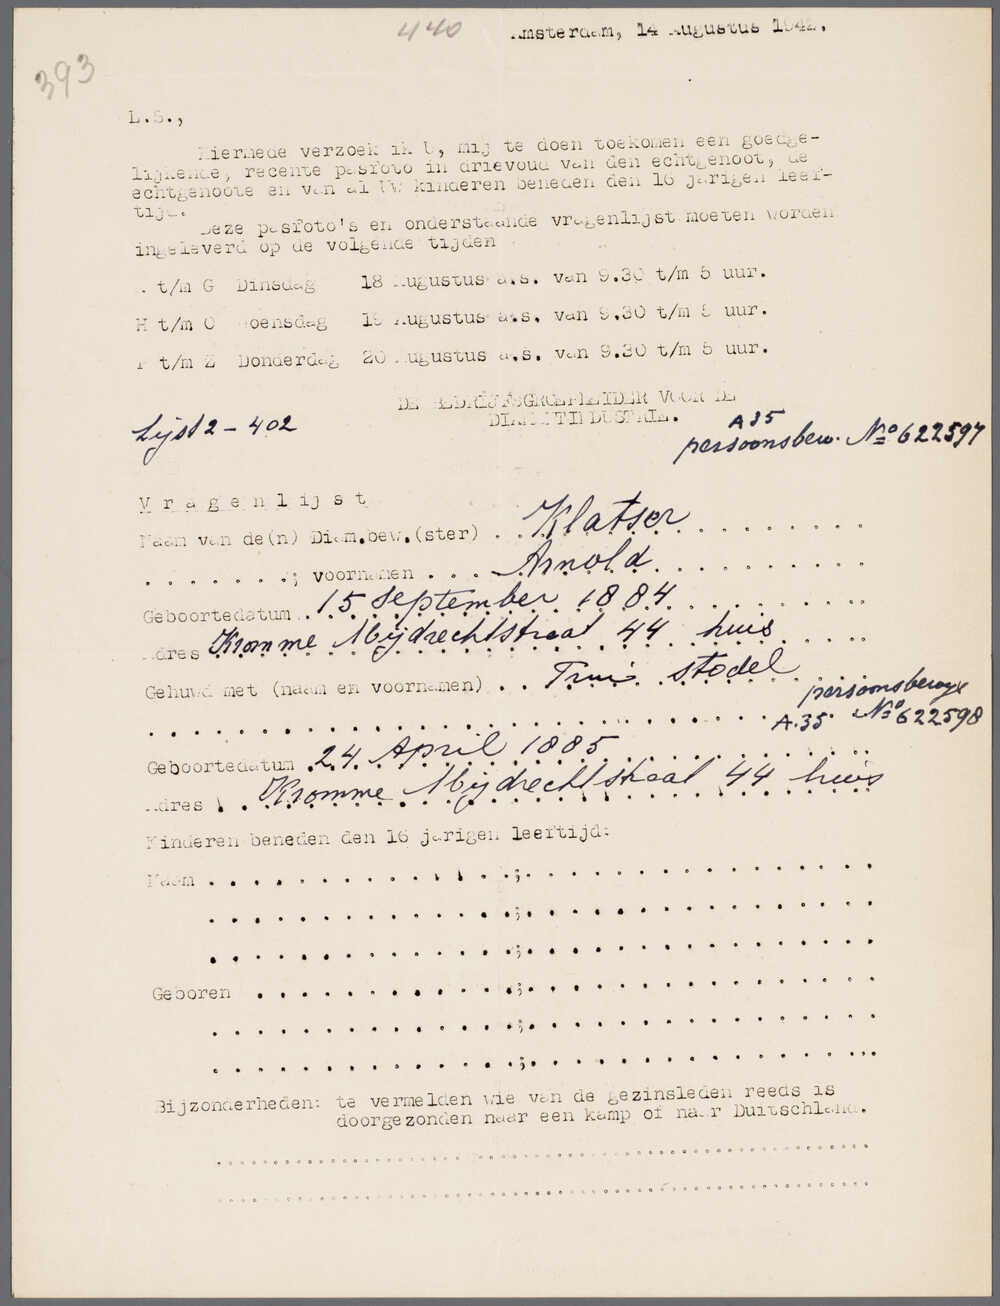 440
Amsterdam, 14 Augustus 1942.
393
L.S.,
Hiermede verzoek ik U, mij te doen toekomen een goedge-
lijkende, recente pasfoto in drievoud van den echtgenoot, de
echtgenoote en van al Uw kinderen beneden den 16 jarigen leef-
tijd.
Deze pasfoto's en onderstaande vragenlijst moeten worden
ingeleverd op de volgende tijden
A t/m G Dinsdag 18 Augustus a.s. van 9.30 t/m 5 uur.
H t/m O Woensdag 19 Augustus a.s. van 9.30 t/m 5 uur.
P t/m Z Donderdag 20 Augustus a.s. van 9.30 t/m 5 uur.
DE BEDRIJFSGROEPLEIDER VOOR DE
DIAMANTINDUSTRIE.
Lijst 2 - 402
A 35
persoonsbew. No 622597
Vragenlijst
Naam van de(n) Diam.bew.(ster) . . Klatser . . . . . . . .
. . . . . . . ; voornamen . . . Arnold . . . . . . . . . .
Geboortedatum . 15 September 1884 . . . . . . . .
Adres Kromme Mijdrechtstraat 44 huis . . . .
Gehuwd met (naam en voornamen) . . Stodel . . .
persoonsbewys
A.35 No 622598
Geboortedatum . 24 April 1885 . . . . . . . . . .
Adres . . Kromme Mijdrechtstraat 44 huis
Kinderen beneden den 16 jarigen leeftijd:
Naam . . . . . . . . . . . . . . ; . . . . . . . . . . . . . . . .
. . . . . . . . . . . . . . ; . . . . . . . . . . . . . . . .
. . . . . . . . . . . . . . ; . . . . . . . . . . . . . . . .
Geboren . . . . . . . . . . . . ; . . . . . . . . . . . . . . . .
. . . . . . . . . . . . . . ; . . . . . . . . . . . . . . . .
. . . . . . . . . . . . . . ; . . . . . . . . . . . . . . . .
Bijzonderheden: te vermelden wie van de gezinsleden reeds is
doorgezonden naar een kamp of naar Duitschland.